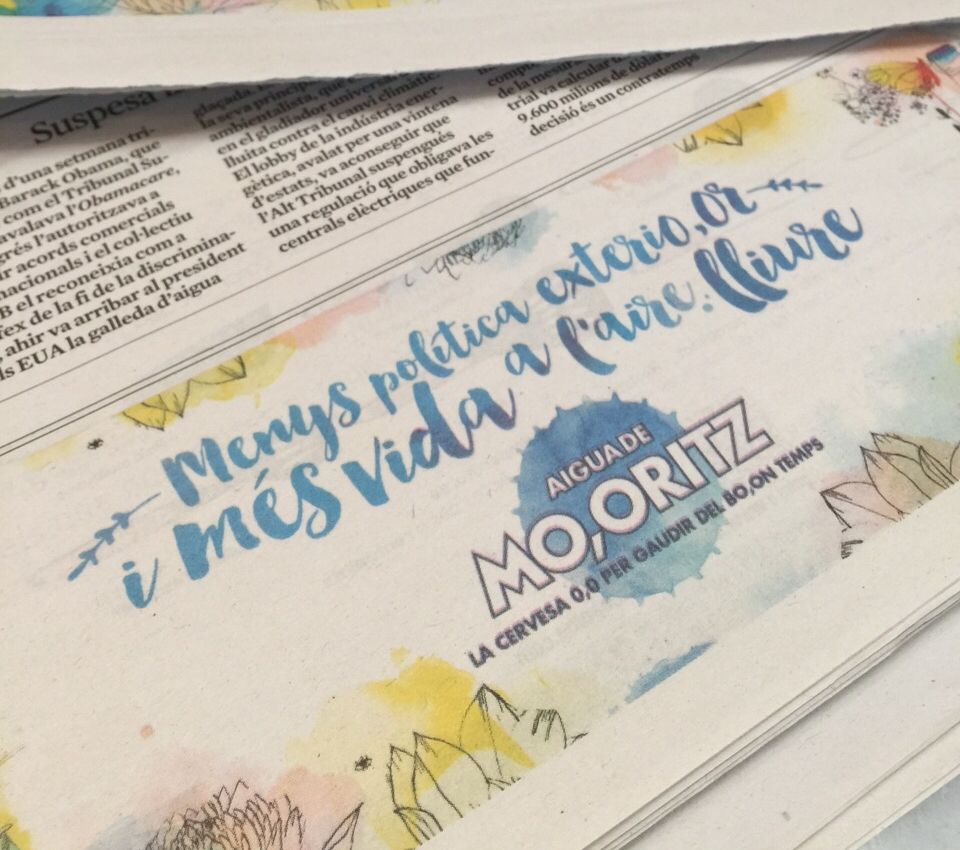 Suspesa
d'una setmana tri-
Barack Obama, que
com el Tribunal Su-
avalava l'Obamacare,
grés l'autoritzava a
ir acords comercials
nacionals i el col·lectiu
B el reconeixia com a
fex de la fi de la discrimina-
, ahir va arribar al president
ls EUA la galleda d'aigua
glaçada.
la seva princip
ambientalista, que
en el gladiador univers
lluita contra el canvi climàtic.
El lobby de la indústria ener-
gètica, avalat per una vintena
d'estats, va aconseguir que
l'Alt Tribunal suspengués
una regulació que obligava les
centrals elèctriques que fun-
de la mesur
trial va calcular
9.600 milions de dòlar
decisió és un contratemps
Menys política exterio,or
i més vida a l'aire. lliure
AIGUA DE
MO,ORITZ
LA CERVESA 0,0 PER GAUDIR DEL BO,ON TEMPS